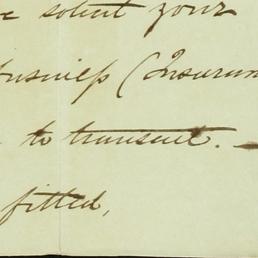 solicit your
business (Insuran
to transact. —
fitted,